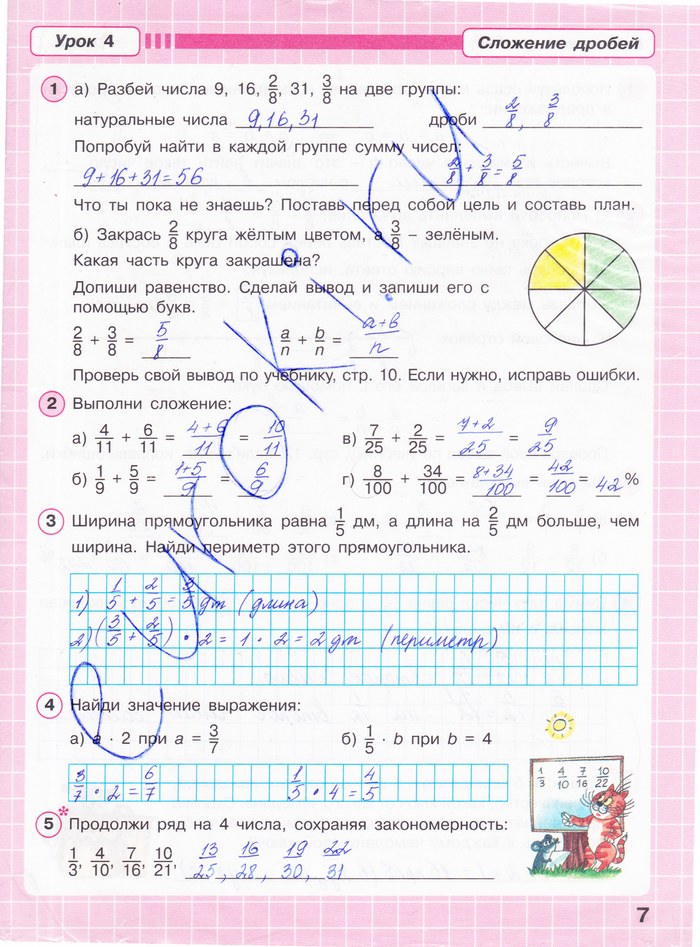 Урок 4
Сложение дробей
1 а) Разбей числа 9, 16, 2/8, 31, 3/8 на две группы:
натуральные числа 9, 16, 31 дроби 2/8, 3/8
Попробуй найти в каждой группе сумму чисел:
9+16+31=56 2/8 + 3/8 = 5/8
Что ты пока не знаешь? Поставь перед собой цель и составь план.
б) Закрась 2/8 круга жёлтым цветом, а 3/8 – зелёным.
Какая часть круга закрашена?
Допиши равенство. Сделай вывод и запиши его с
помощью букв.
2/8 + 3/8 = 5/8 a/n + b/n = a+b/n
Проверь свой вывод по учебнику, стр. 10. Если нужно, исправь ошибки.
2 Выполни сложение:
а) 4/11 + 6/11 = 4+6/11 = 10/11 в) 7/25 + 2/25 = 7+2/25 = 9/25
б) 1/9 + 5/9 = 1+5/9 = 6/9 г) 8/100 + 34/100 = 8+34/100 = 42/100 = 42 %
3 Ширина прямоугольника равна 1/5 дм, а длина на 2/5 дм больше, чем
ширина. Найди периметр этого прямоугольника.
1) 1/5 + 2/5 = 3/5 дм (длина)
2) (3/5 + 2/5) · 2 = 1 · 2 = 2 дм (периметр)
4 Найди значение выражения:
а) a · 2 при a = 3/7 б) 1/5 · b при b = 4
3/7 · 2 = 6/7 1/5 · 4 = 4/5
1/3 4/10 7/16 10/22
5* Продолжи ряд на 4 числа, сохраняя закономерность:
1/3, 4/10, 7/16, 10/21, 13/25, 16/28, 19/30, 22/31
7